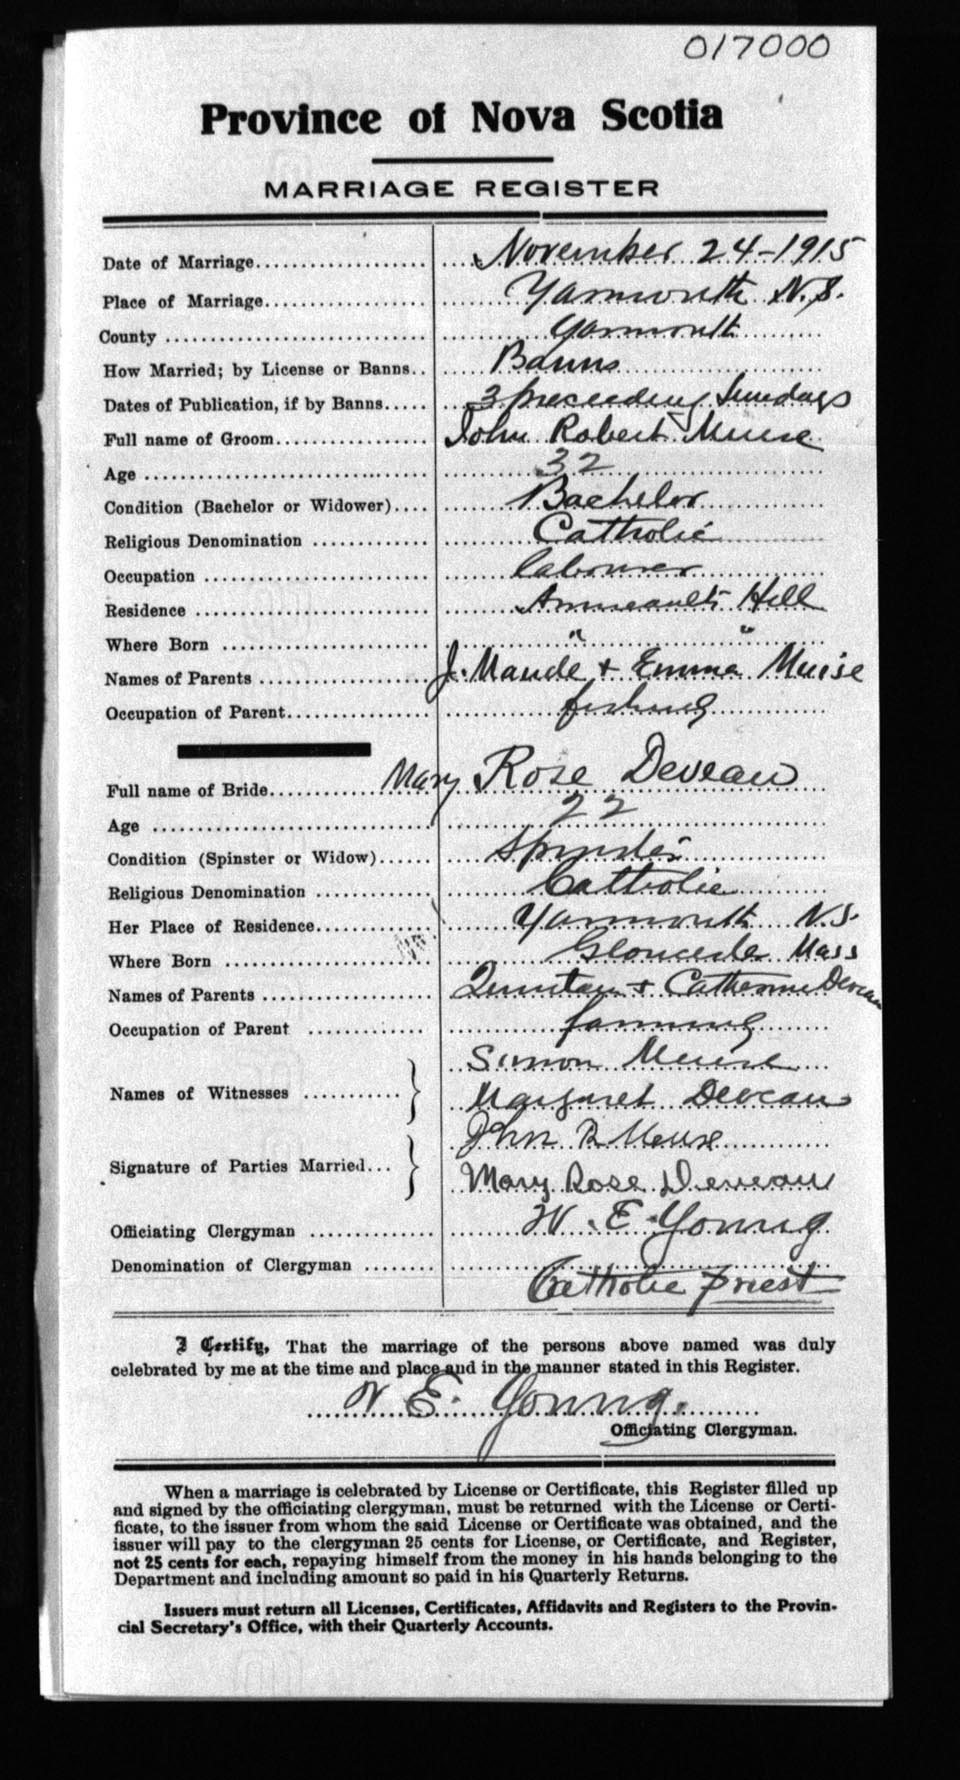 017000
Province of Nova Scotia
MARRIAGE REGISTER
Date of Marriage.................... November 24-1915
Place of Marriage................... Yarmouth N.S.
County .............................. Yarmouth
How Married; by License or Banns.. Banns
Dates of Publication, if by Banns..... 3 preceeding Sundays
Full name of Groom.................. John Robert Muise
Age .................................. 32
Condition (Bachelor or Widower).... Bachelor
Religious Denomination ............. Catholic
Occupation .......................... labourer
Residence ........................... Amireault Hill
Where Born ......................... " "
Names of Parents .................... J. Mande + Emma Muise
Occupation of Parent................. fishing
Full name of Bride................... Mary Rose Deveau
Age .................................. 22
Condition (Spinster or Widow)...... Spinster
Religious Denomination ............. Catholic
Her Place of Residence............... Yarmouth N.S.
Where Born ......................... Gloucester Mass
Names of Parents .................... + Catherine Deveau
Occupation of Parent ............. farming
Names of Witnesses ........... } Simon Muise
Margaret Deveau
Signature of Parties Married... } John R Meuse
Mary Rose Deveau
Officiating Clergyman .............. W. E. Young
Denomination of Clergyman ........ Catholic priest
I Certify, That the marriage of the persons above named was duly
celebrated by me at the time and place and in the manner stated in this Register.
W E. Young.
Officiating Clergyman.
When a marriage is celebrated by License or Certificate, this Register filled up
and signed by the officiating clergyman, must be returned with the License or Certi-
ficate, to the issuer from whom the said License or Certificate was obtained, and the
issuer will pay to the clergyman 25 cents for License, or Certificate, and Register,
not 25 cents for each, repaying himself from the money in his hands belonging to the
Department and including amount so paid in his Quarterly Returns.
Issuers must return all Licenses, Certificates, Affidavits and Registers to the Provin-
cial Secretary's Office, with their Quarterly Accounts.